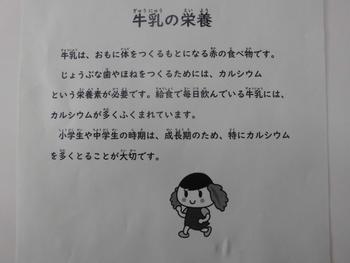 牛乳の栄養
牛乳は、おもに体をつくるもとになる赤の食べ物です。
じょうぶな歯やほねをつくるためには、カルシウム
という栄養素が必要です。給食で毎日飲んでいる牛乳には、
カルシウムが多くふくまれています。
小学生や中学生の時期は、成長期のため、特にカルシウム
を多くとることが大切です。